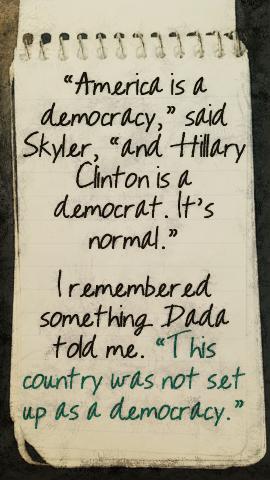 “America is a
democracy,” said
Skyler, “and Hillary
Clinton is a
democrat. It’s
normal.”
I remembered
something Dada
told me. “This
country was not set
up as a democracy.”